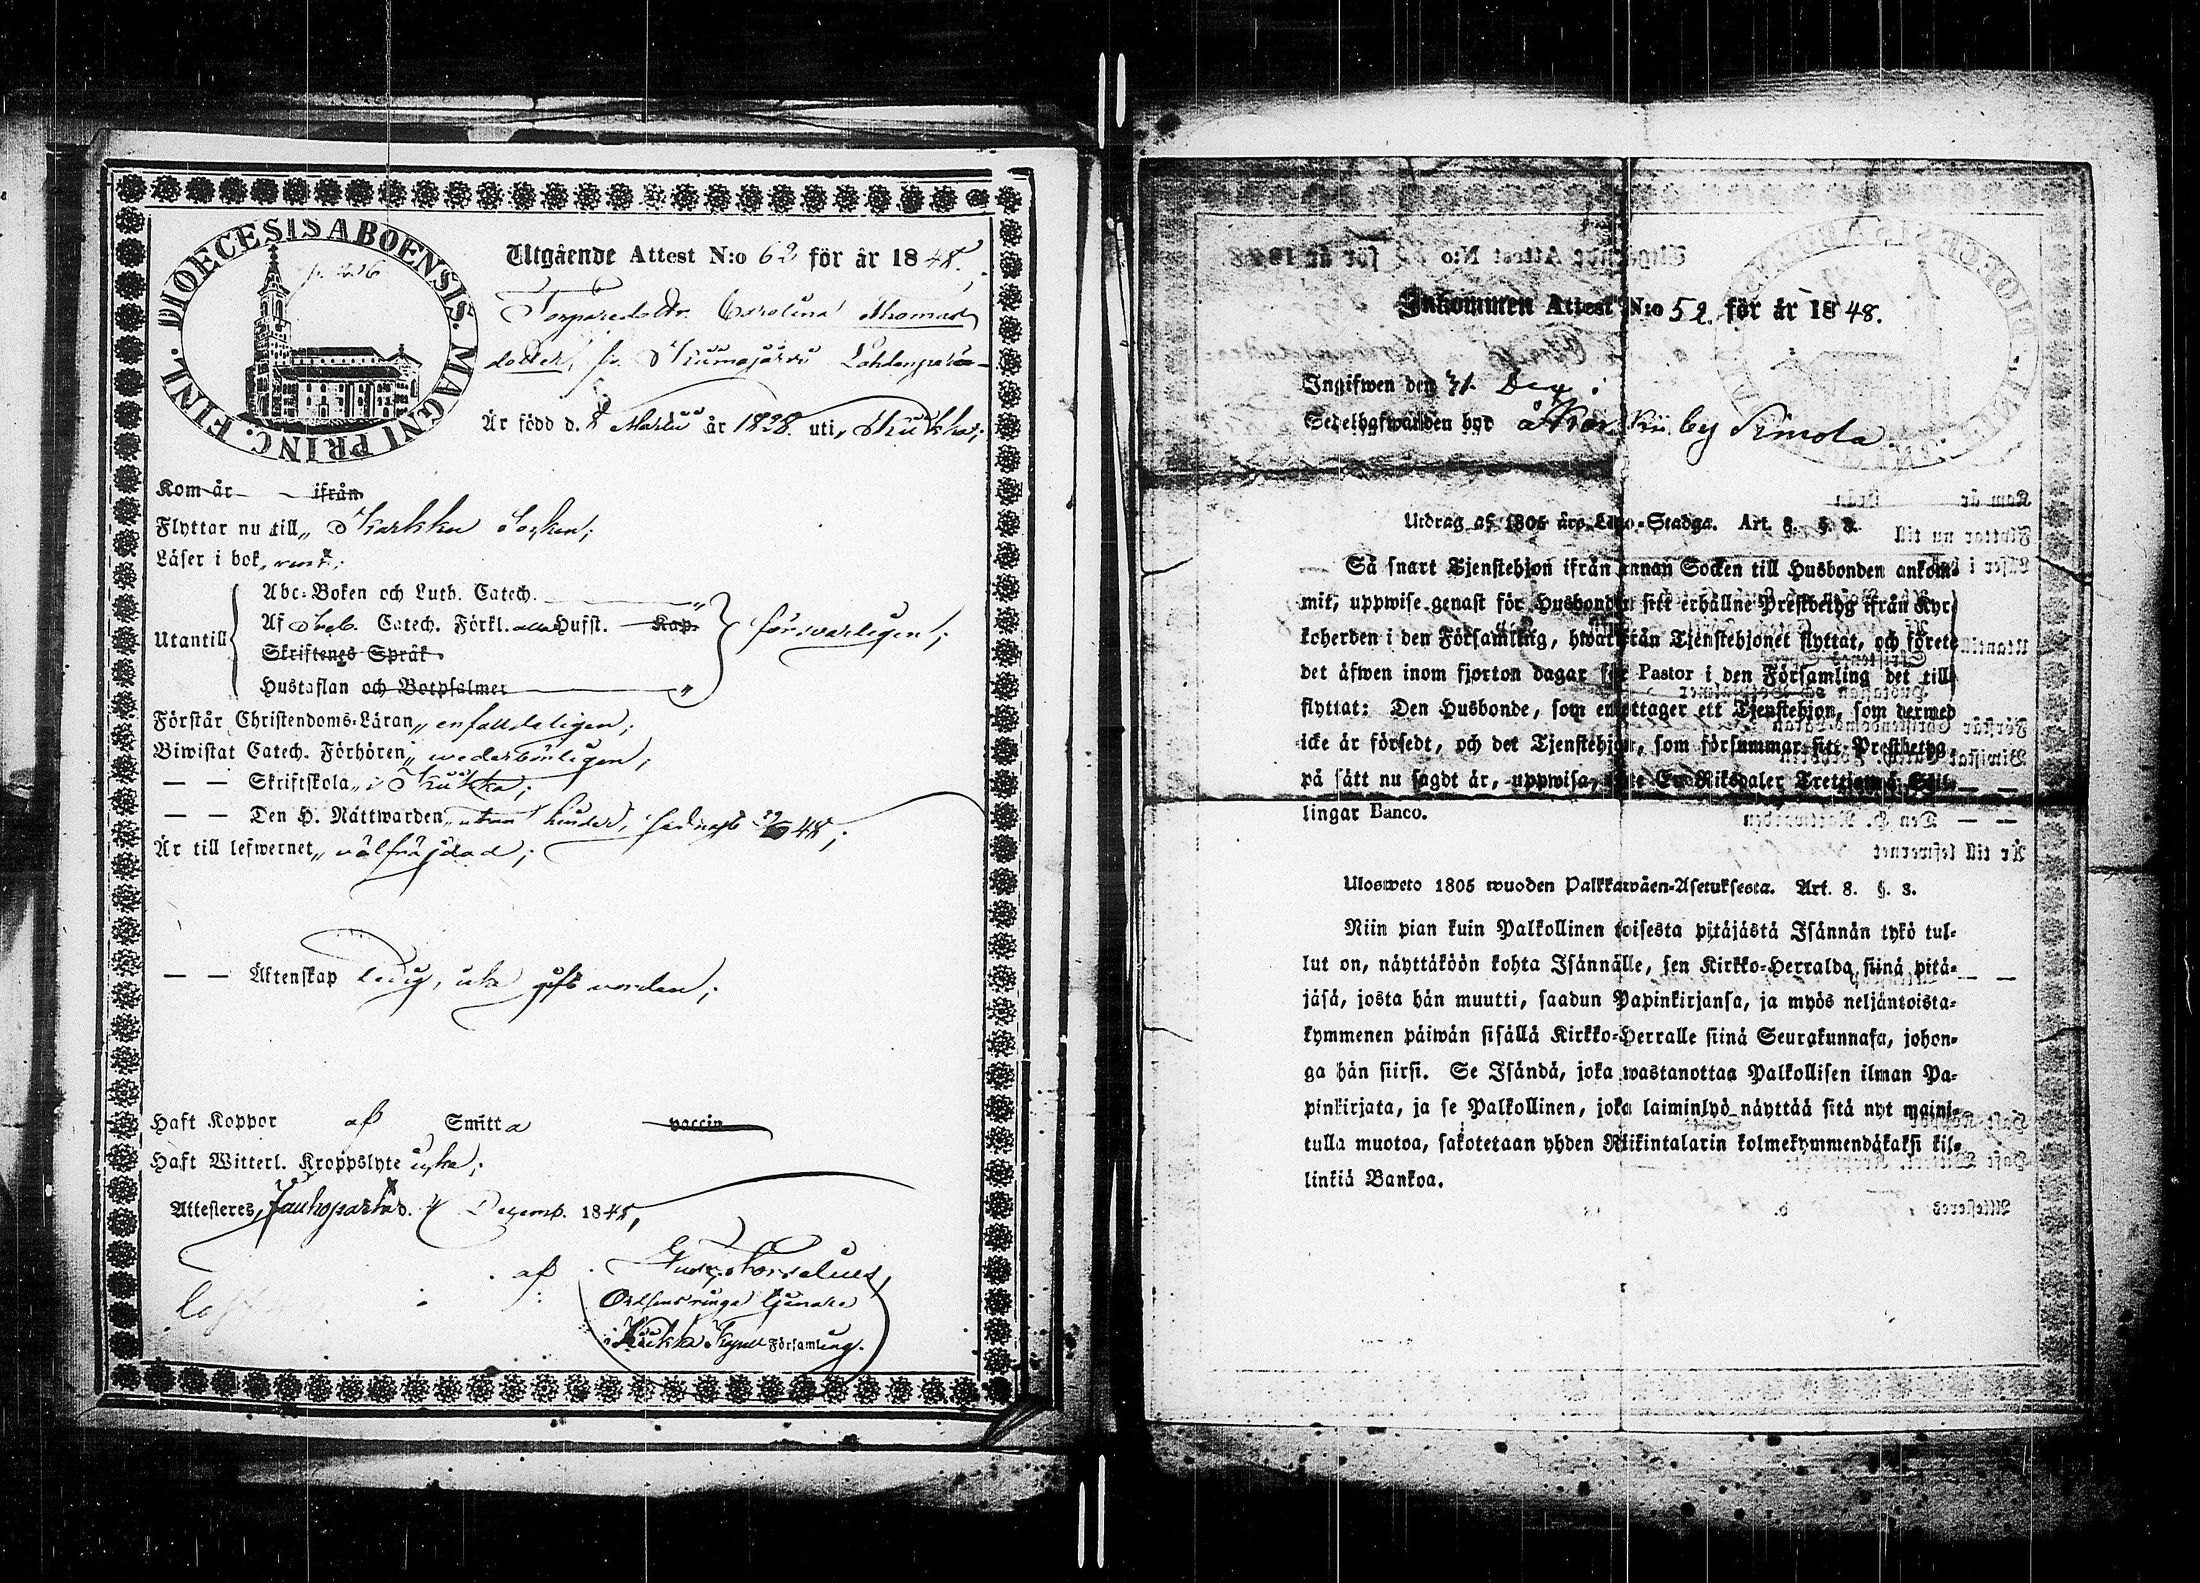 DIOECESIS ABOENSIS. MAGNI PRINC. FINL.
Utgående Attest N:o 62 för år 1848.
Torparedottr. Carolina Thomas
dotter, fr.
Är född d. 8 Martii år 1828. uti
Kom år ifrån
Flyttar nu till Karkku Socken;
Läser i bok, rent;
Abc-Boken och Luth. Catech.
Utantill
Af Sveb. Catech. Förkl. alla Hufst. Kap.
försvarligen;
Skriftenes Språk
Hustaflan och Botpsalmer
Förstår Christendoms-Läran enfalldeligen;
Biwistat Catech. Förhören wederbörligen;
— — Skriftskola i
— — Den H. Nattwarden utan hinder, sednast 48;
Är till lefwernet välfräjdad;
— — Äktenskap ledig, icke gift vorden;
Haft Koppor af Smitta vaccin
Haft Witterl. Kroppslyte icke;
Attesteres, d. Decemb. 1848,
af
Församling.
Inkommen Attest N:o 52. för år 1848.
Ingifwen den 31. Dec.
Sedelhafwarden bor å Karkku by Simola.
Utdrag af 1805 års Lego-Stadga. Art. 8. §. 3.
Så snart Tjenstehjon ifrån annan Socken till Husbonden ankom-
mit, uppwise genast för Husbonden sitt erhållne Prestbetyg ifrån Kyr-
koherden i den Församling, hwarifrån Tjenstehjonet flyttat, och förete
det äfwen inom fjorton dagar för Pastor i den Församling det till
flyttat: Den Husbonde, som emottager ett Tjenstehjon, som dermed
icke är försedt, och det Tjenstehjon, som försummar sitt Prestbetyg,
på sätt nu sagdt är, uppwisa, böte En Riksdaler Trettiotwå Skil-
lingar Banco.
Ulosweto 1805 wuoden Palkkawäen-Asetuksesta. Art. 8. §. 3.
Niin pian kuin Palkollinen toisesta pitäjästä Isännän tykö tul-
lut on, näyttäköön kohta Isännälle, sen Kirkko-Herralda, siinä pitä-
jäsä, josta hän muutti, saadun Papinkirjansa, ja myös neljäntoista-
kymmenen päiwän sisällä Kirkko-Herralle siinä Seurakunnasa, johon-
ga hän siirsi. Se Isändä, joka wastanottaa Palkollisen ilman Pa-
pinkirjata, ja se Palkollinen, joka laiminlyö näyttää sitä nyt maini-
tulla muotoa, sakotetaan yhden Riikintalarin kolmekymmendäkaksi kil-
linkiä Bankoa.